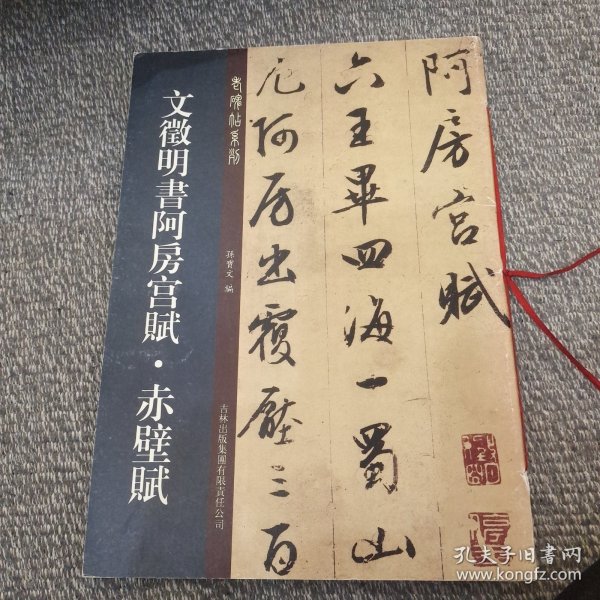 阿房宫賦
六王畢四海一蜀山
兀阿房出覆壓三百
老碑帖系列
孫寶文 編
吉林出版集團有限責任公司
文徵明書阿房宫賦·赤壁賦
孔夫子旧书网
www.kongfz.com